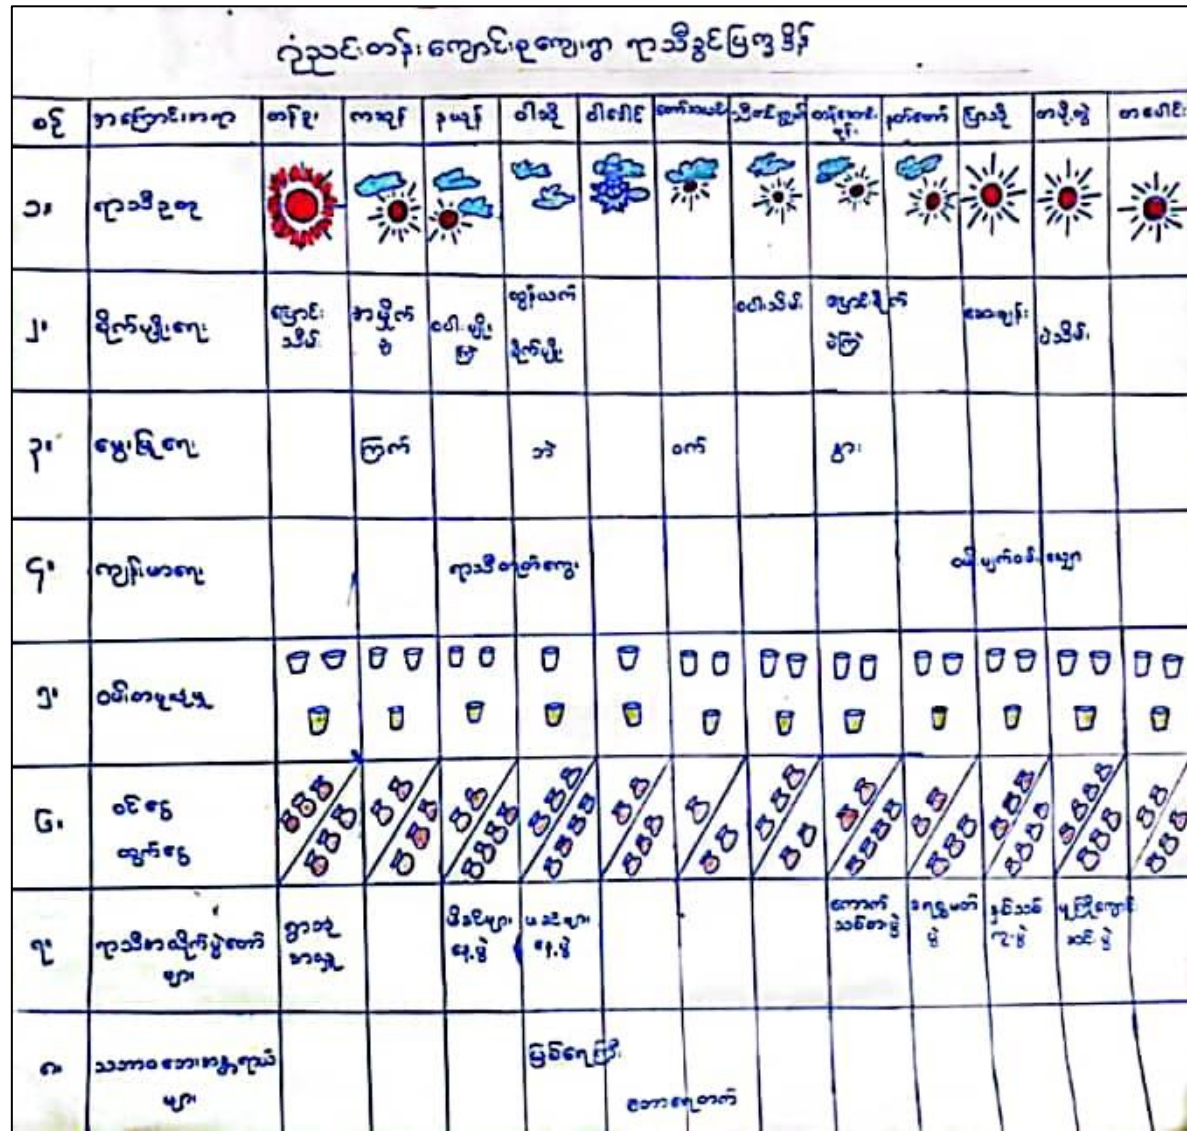 ဂုံညင်းတန်းကျောင်းစုကျေးရွာ ရာသီခွင်ပြက္ခဒိန်
စဉ် အကြောင်းအရာ တန်ခူး ကဆုန် နယုန် ဝါဆို ဝါခေါင် တော်သလင်း သီတင်းကျွတ် တန်ဆောင်မုန်း နတ်တော် ပြာသို တပို့တွဲ တပေါင်း
၁။ ရာသီဥတု
၂။ စိုက်ပျိုးရေး
ပြောင်းသိမ်း
စပါးမျိုးကြဲ
ထွန်ယက်
စိုက်ပျိုး
စပါးသိမ်း
ပြောင်းစိုက်
ပဲကြဲ
ပဲသိမ်း
၃။ မွေးမြူရေး ကြက် ဘဲ ဝက် နွား
၄။ ကျန်းမာရေး ရာသီတုတ်ကွေး ဝမ်းပျက်ဝမ်းလျှော
၅။
၆။ ဝင်ငွေ
ထွက်ငွေ
၇။ ရာသီအလိုက်ပွဲတော်များ
ရွာဘုံအလှူ
မိခင်များနေ့ပွဲ
ဖခင်များနေ့ပွဲ
ကောက်သစ်စားပွဲ
ခရစ္စမတ်ပွဲ
နှစ်သစ်ကူးပွဲ
၈။ သဘာဝဘေးအန္တရာယ်များ
မြစ်ရေကြီး
ဘောရေတက်